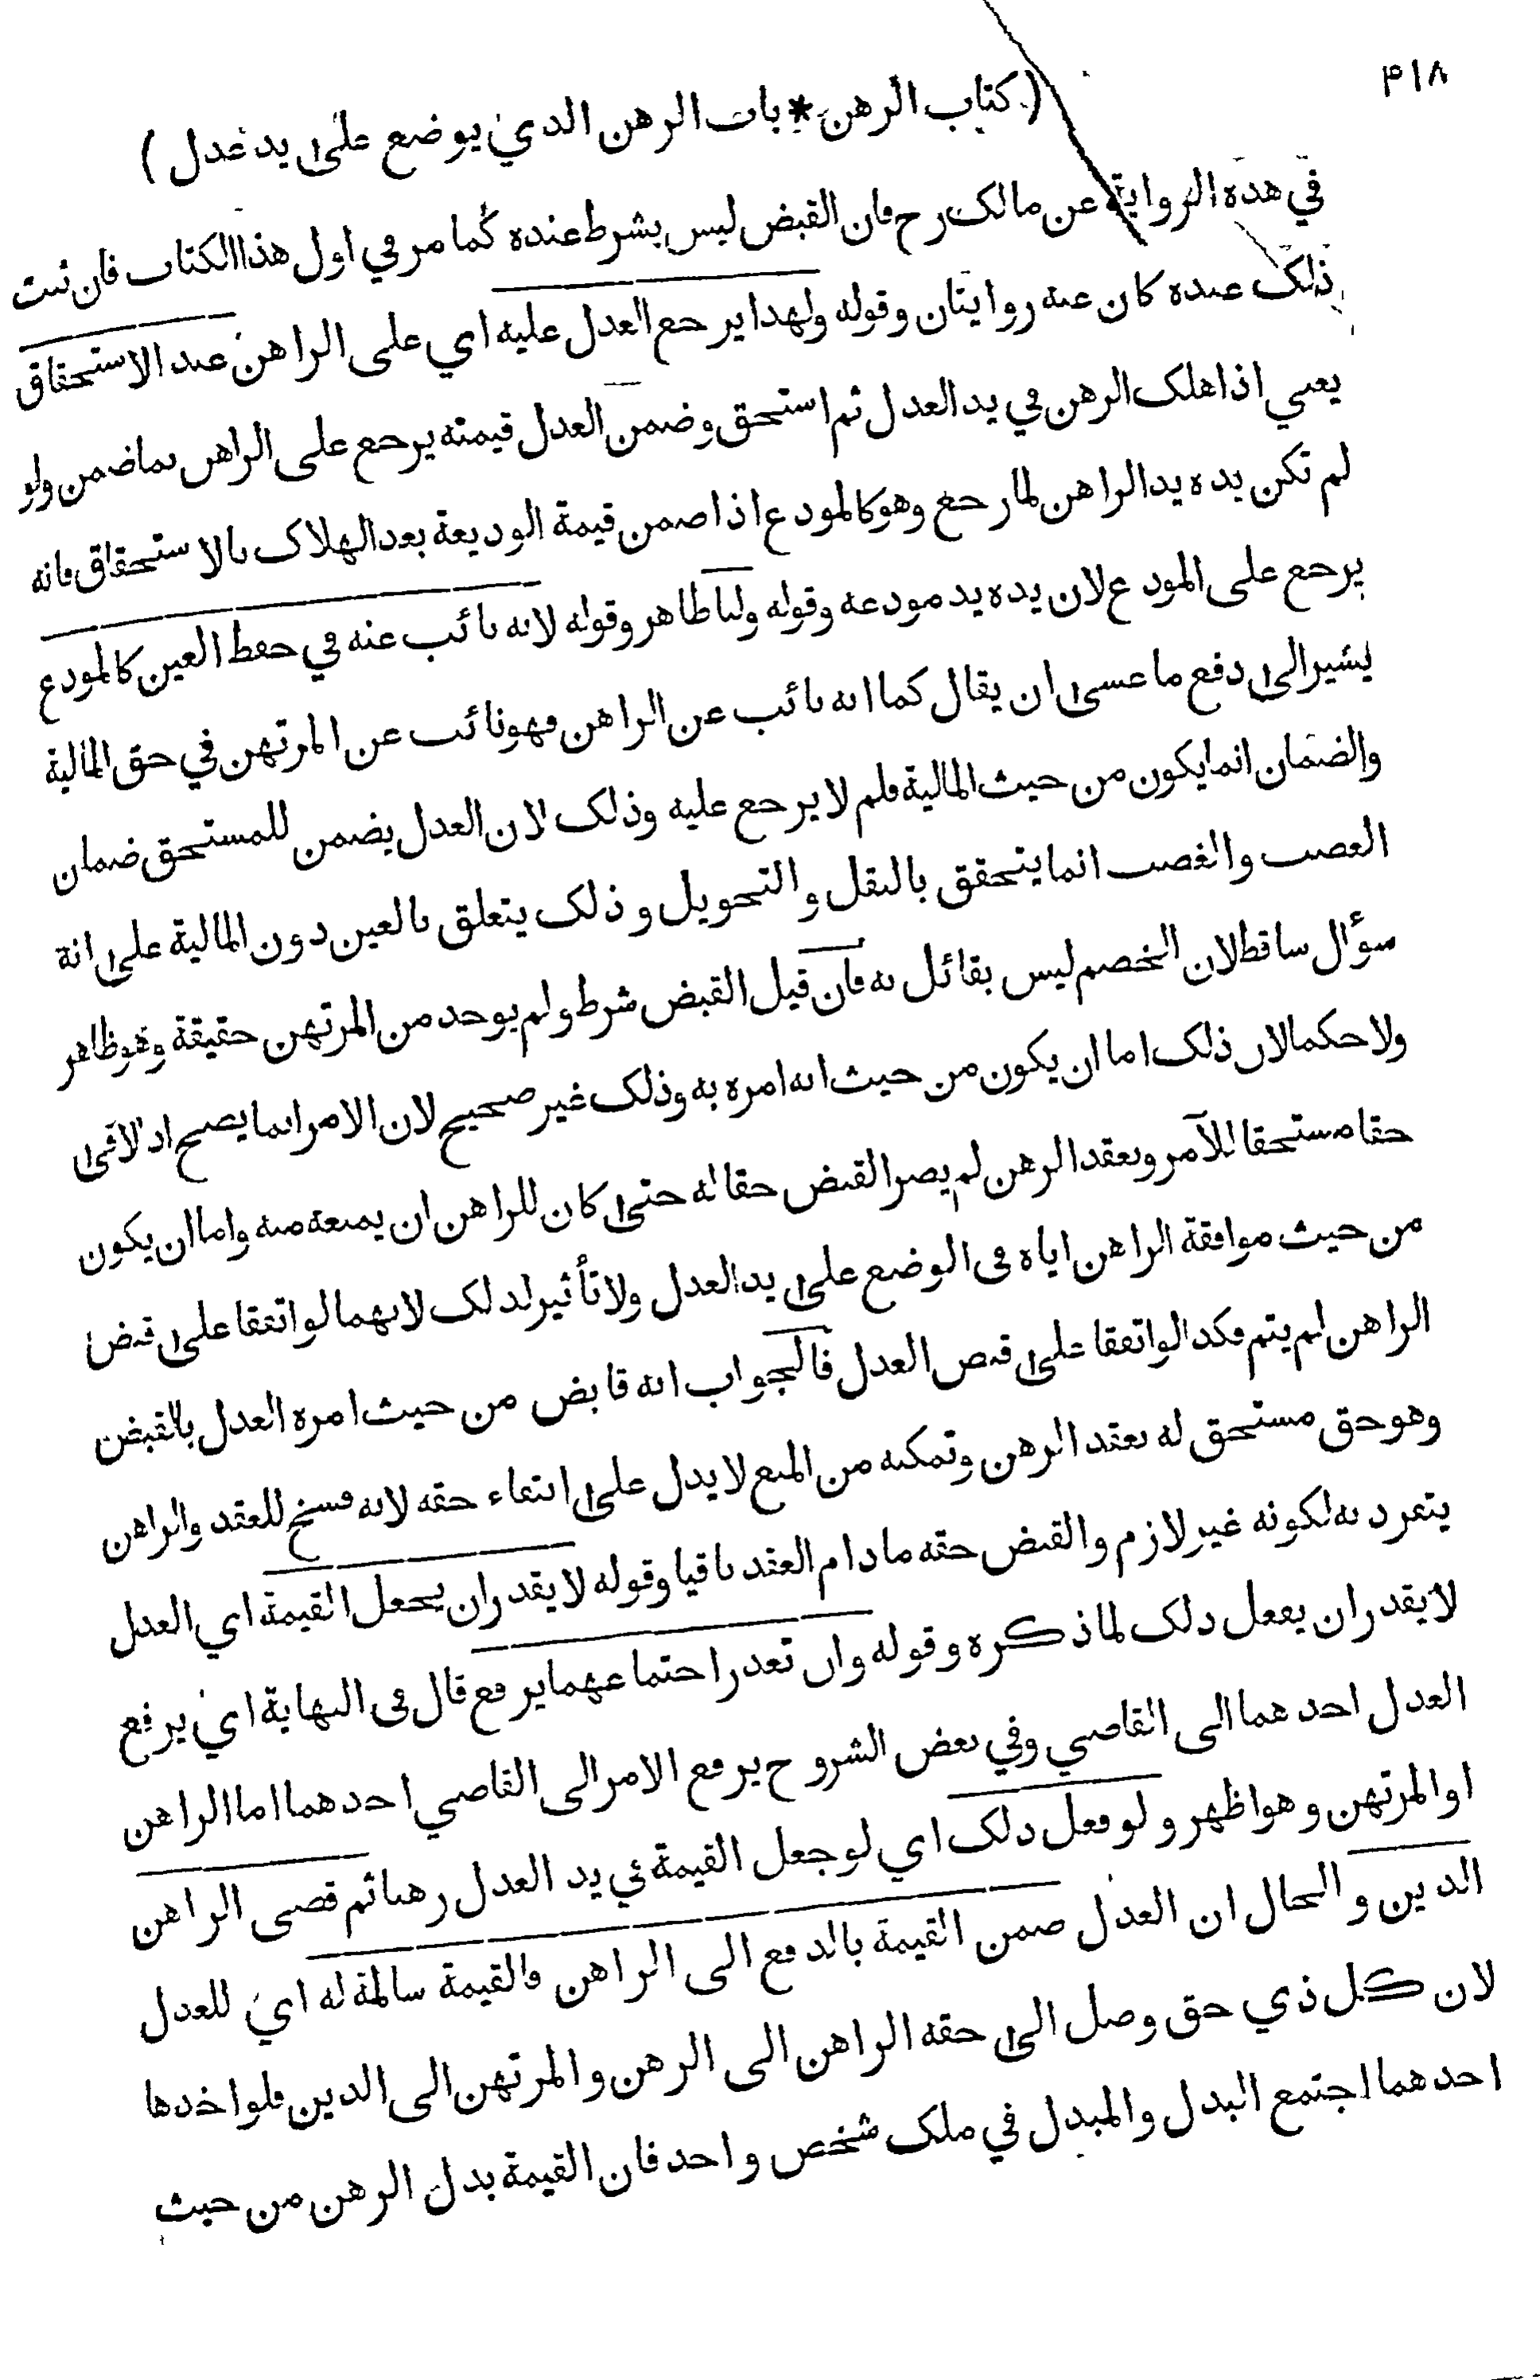 ٤١٨
( كتاب الرهن * باب الرهن الذي يوضع على يد عدل )
في هذه الرواية عن مالك رح فان القبض ليس بشرط عنده كما مر في اول هذا الكتاب فان ثبت
ذلك عنده كان عنه روايتان وقوله ولهذا يرجع العدل عليه اي على الراهن عند الاستحقاق
يعني اذا هلك الرهن في يد العدل ثم استحق وضمن العدل قيمته يرجع على الراهن بما ضمن ولو
لم تكن يده يد الراهن لما رجع وهو كالمودع اذا ضمن قيمة الوديعة بعد الهلاك بالاستحقاق فانه
يرجع على المودع لان يده يد مودعه وقوله ولنا ظاهر وقوله لانه نائب عنه في حفظ العين كالمودع
يشير الى دفع ما عسى ان يقال كما انه نائب عن الراهن فهو نائب عن المرتهن في حق المالية
والضمان انما يكون من حيث المالية فلم لا يرجع عليه وذلك لان العدل يضمن للمستحق ضمان
الغصب والغصب انما يتحقق بالنقل والتحويل وذلك يتعلق بالعين دون المالية على انه
سؤال ساقط لان الخصم ليس بقائل به فان قيل القبض شرط ولم يوجد من المرتهن حقيقة وهو ظاهر
ولا حكما لان ذلك اما ان يكون من حيث انه امره به وذلك غير صحيح لان الامر انما يصح اذ لاقى
حقا مستحقا للآمر وبعقد الرهن لم يصر القبض حقا له حتى كان للراهن ان يمنعه منه واما ان يكون
من حيث موافقة الراهن اياه في الوضع على يد العدل ولا تأثير لذلك لانهما لو اتفقا على قبض
الراهن لم يتم فكذا لو اتفقا على قبض العدل فالجواب انه قابض من حيث امره العدل بالقبض
وهو حق مستحق له بعقد الرهن وتمكنه من المنع لا يدل على انتفاء حقه لانه فسخ للعقد والراهن
يتفرد به لكونه غير لازم والقبض حقه ما دام العقد باقيا وقوله لا يقدر ان يجعل القيمة اي العدل
لا يقدر ان يفعل ذلك لما ذكره وقوله وان تعذر اجتماعهما يرفع قال في النهاية اي يرفع
العدل احدهما الى القاضي وفي بعض الشروح يرفع الامر الى القاضي احدهما اما الراهن
او المرتهن وهو اظهر ولو فعل ذلك اي لو جعل القيمة في يد العدل رهنا ثم قضى الراهن
الدين والحال ان العدل ضمن القيمة بالدفع الى الراهن فالقيمة سالمة له اي للعدل
لان كل ذي حق وصل الى حقه الراهن الى الرهن والمرتهن الى الدين فلو اخذها
احدهما اجتمع البدل والمبدل في ملك شخص واحد فان القيمة بدل الرهن من حيث